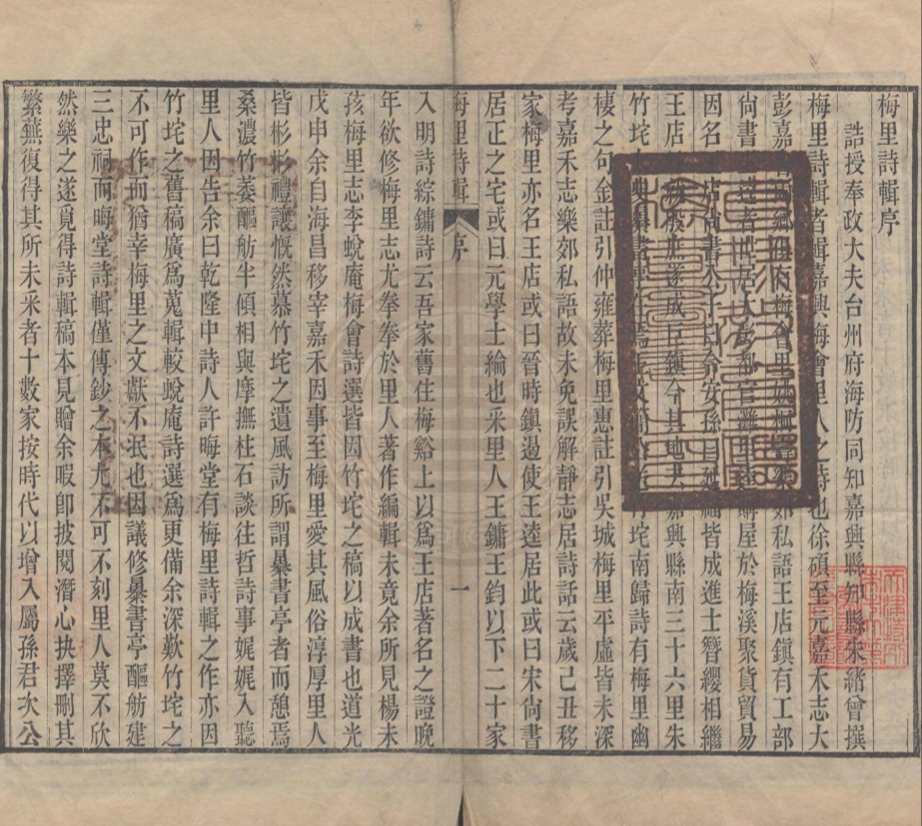 梅里詩輯序
誥授奉政大夫台州府海防同知嘉興縣知縣朱緒曾撰
梅里詩輯者輯嘉興梅會里人之詩也徐碩至元嘉禾志大
彭嘉 鄉 有梅會里姚桐壽樂郊私語王店鎮有工部
尙書 逵者世居大彭都官灘里 購屋於梅溪聚貨貿易
因名 店尙書
皆成進士簪纓相繼
王店 殷庶遂成巨鎮今其地去嘉興縣南三十六里朱
竹垞 曝書亭在焉
竹垞南歸詩有梅里幽
棲之句金註引仲雍葬梅里惠註引吳城梅里平虛皆未深
考嘉禾志樂郊私語故未免誤解靜志居詩話云歲己丑移
家梅里亦名王店或曰晉時鎮遏使王逵居此或曰宋尙書
居正之宅或曰元學士綸也采里人王鏞王鈞以下二十家
梅里詩輯 序 一
入明詩綜鏞詩云吾家舊住梅谿上以爲王店著名之證晚
年欲修梅里志尤拳拳於里人著作編輯未竟余所見楊未
孩梅里志李蛻庵梅會詩選皆因竹垞之稿以成書也道光
戊申余自海昌移宰嘉禾因事至梅里愛其風俗淳厚里人
皆彬彬禮讓慨然慕竹垞之遺風訪所謂曝書亭者而憩焉
桑濃竹萎醧舫半傾相與摩撫柱石談往哲詩事娓娓入聽
里人因告余曰乾隆中詩人許晦堂有梅里詩輯之作亦因
竹垞之舊稿廣爲蒐輯較蛻庵詩選爲更備余深歎竹垞之
不可作而猶幸梅里之文獻不泯也因議修曝書亭醧舫建
三忠祠而晦堂詩輯僅傳鈔之本尤不可不刻里人莫不欣
然樂之遂覓得詩輯稿本見贈余暇卽披閱潛心抉擇刪其
繁蕪復得其所未采者十數家按時代以增入屬孫君次公